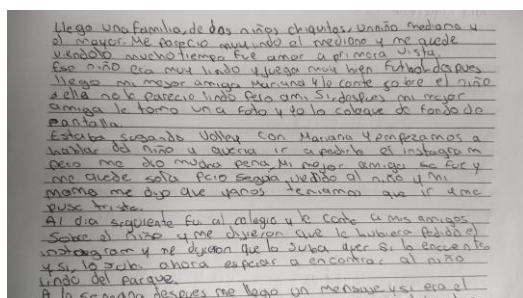 Llego una familia, de dos niños chiquitos, un niño mediano y
el mayor. Me parecio muy lindo el mediano y me quede
viendolo mucho tiempo fue amor a primera vista.
Ese niño era muy lindo y juega muy bien futbol. despues
llego mi mejor amiga Mariana y le conte sobre el niño
a ella no le parecio lindo pero ami si, despues mi mejor
amiga le tomo una foto y yo la coloque de fondo de
pantalla.
Estaba jugando volley con Mariana y empezamos a
hablar del niño y queria ir a pedirle el instagram
pero me dio mucha pena, Mi mejor amiga se fue y
me quede sola pero seguia viendo al niño y mi
mama me dijo que vamos teniamos que ir y me
puse triste.
Al dia siguiente fui al colegio y le conte a mis amigos
sobre el niño y me dijeron que le hubiera pedido el
instagram y me dijeron que lo suba aver si lo encuentro
y si, lo subi ahora esperar a encontrar al niño
lindo del parque.
A la semana despues me llego un mensaje y si era el